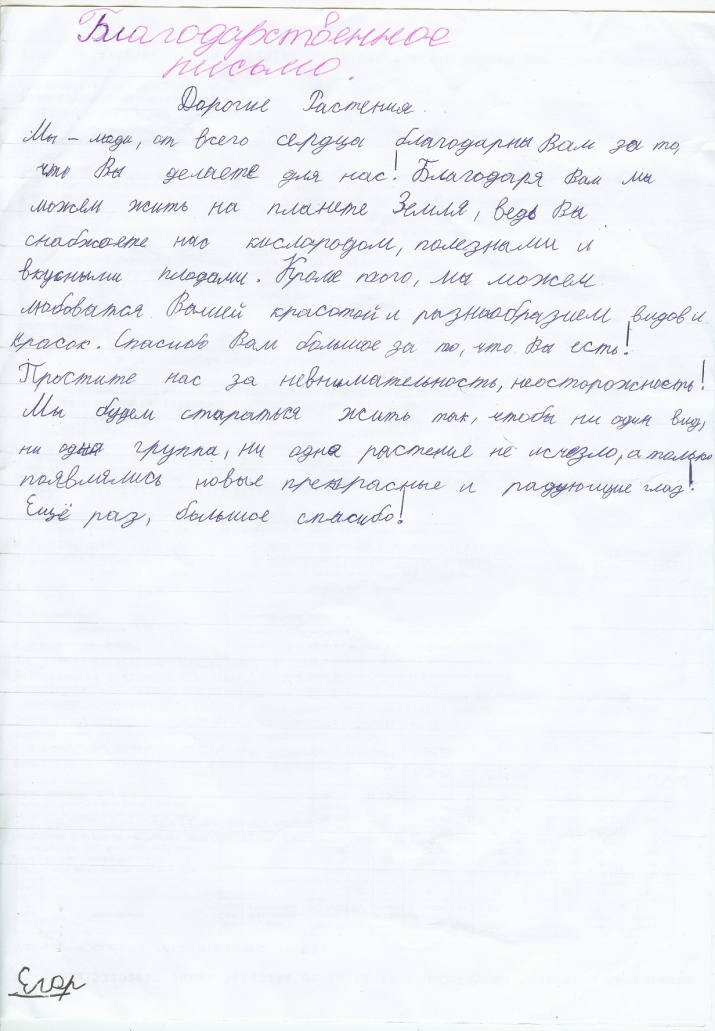 Благодарственное
письмо.
Дорогие Растения.
Мы – люди, от всего сердца благодарны Вам за то,
что Вы делаете для нас! Благодаря Вам мы
можем жить на планете Земля, ведь Вы
снабжаете нас кислородом, полезными и
вкусными плодами. Кроме того, мы можем
любоватся Вашей красотой и разнообразием видов и
красок. Спасибо Вам большое за то, что Вы есть!
Простите нас за невнимательность, неосторожность!
Мы будем стараться жить так, чтобы ни один вид,
ни одна группа, ни одна растение не исчезло, а только
появлялись новые прекрасные и радующие глаз!
Ещё раз, большое спасибо!
Егор